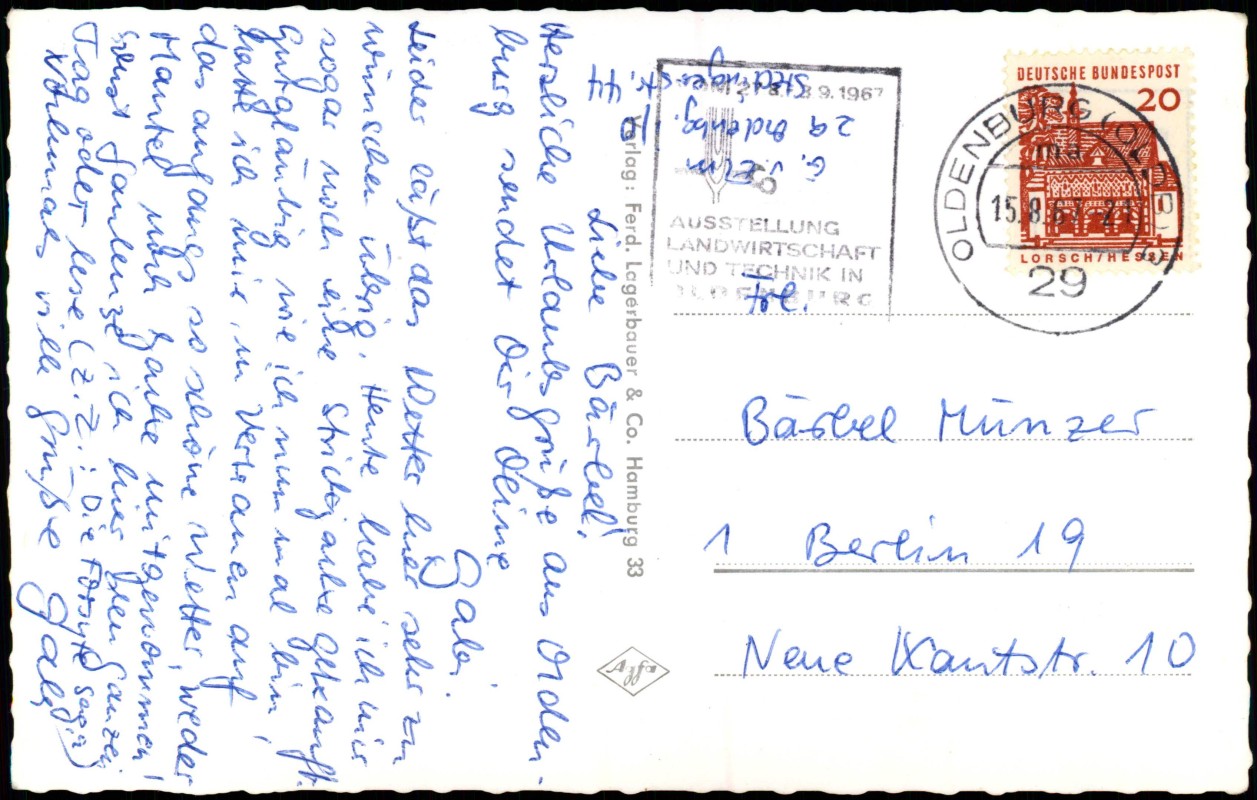 Liebe Bärbel!
Herzliche Urlaubsgrüße aus Olden-
burg sendet Dir Deine
Gabi.
Leider läßt das Wetter hier sehr zu
wünschen übrig. Heute habe ich mir
sogar noch eine Strickjacke gekauft.
Gutgläubig wie ich nun mal bin,
hatte ich mir, im Vertrauen auf
das anfangs so schöne Wetter, weder
Mantel noch Jacke mitgenommen!
Sonst faulenze ich hier den ganzen
Tag oder lese (z.Z.: Die Forsyte saga)
Nochmals viele Grüße Gabi
29 Oldenbg.
Stedingerstr. 44
Verlag: Ferd. Lagerbauer & Co. Hamburg 33
Agfa
21.8.-3.9.1967
AUSSTELLUNG
LANDWIRTSCHAFT
UND TECHNIK IN
OLDENBURG
DEUTSCHE BUNDESPOST
20
LORSCH/HESSEN
OLDENBURG (OLDB)
15.8.67-21
29
Frl.
Bärbel Münzer
1 Berlin 19
Neue Kantstr. 10